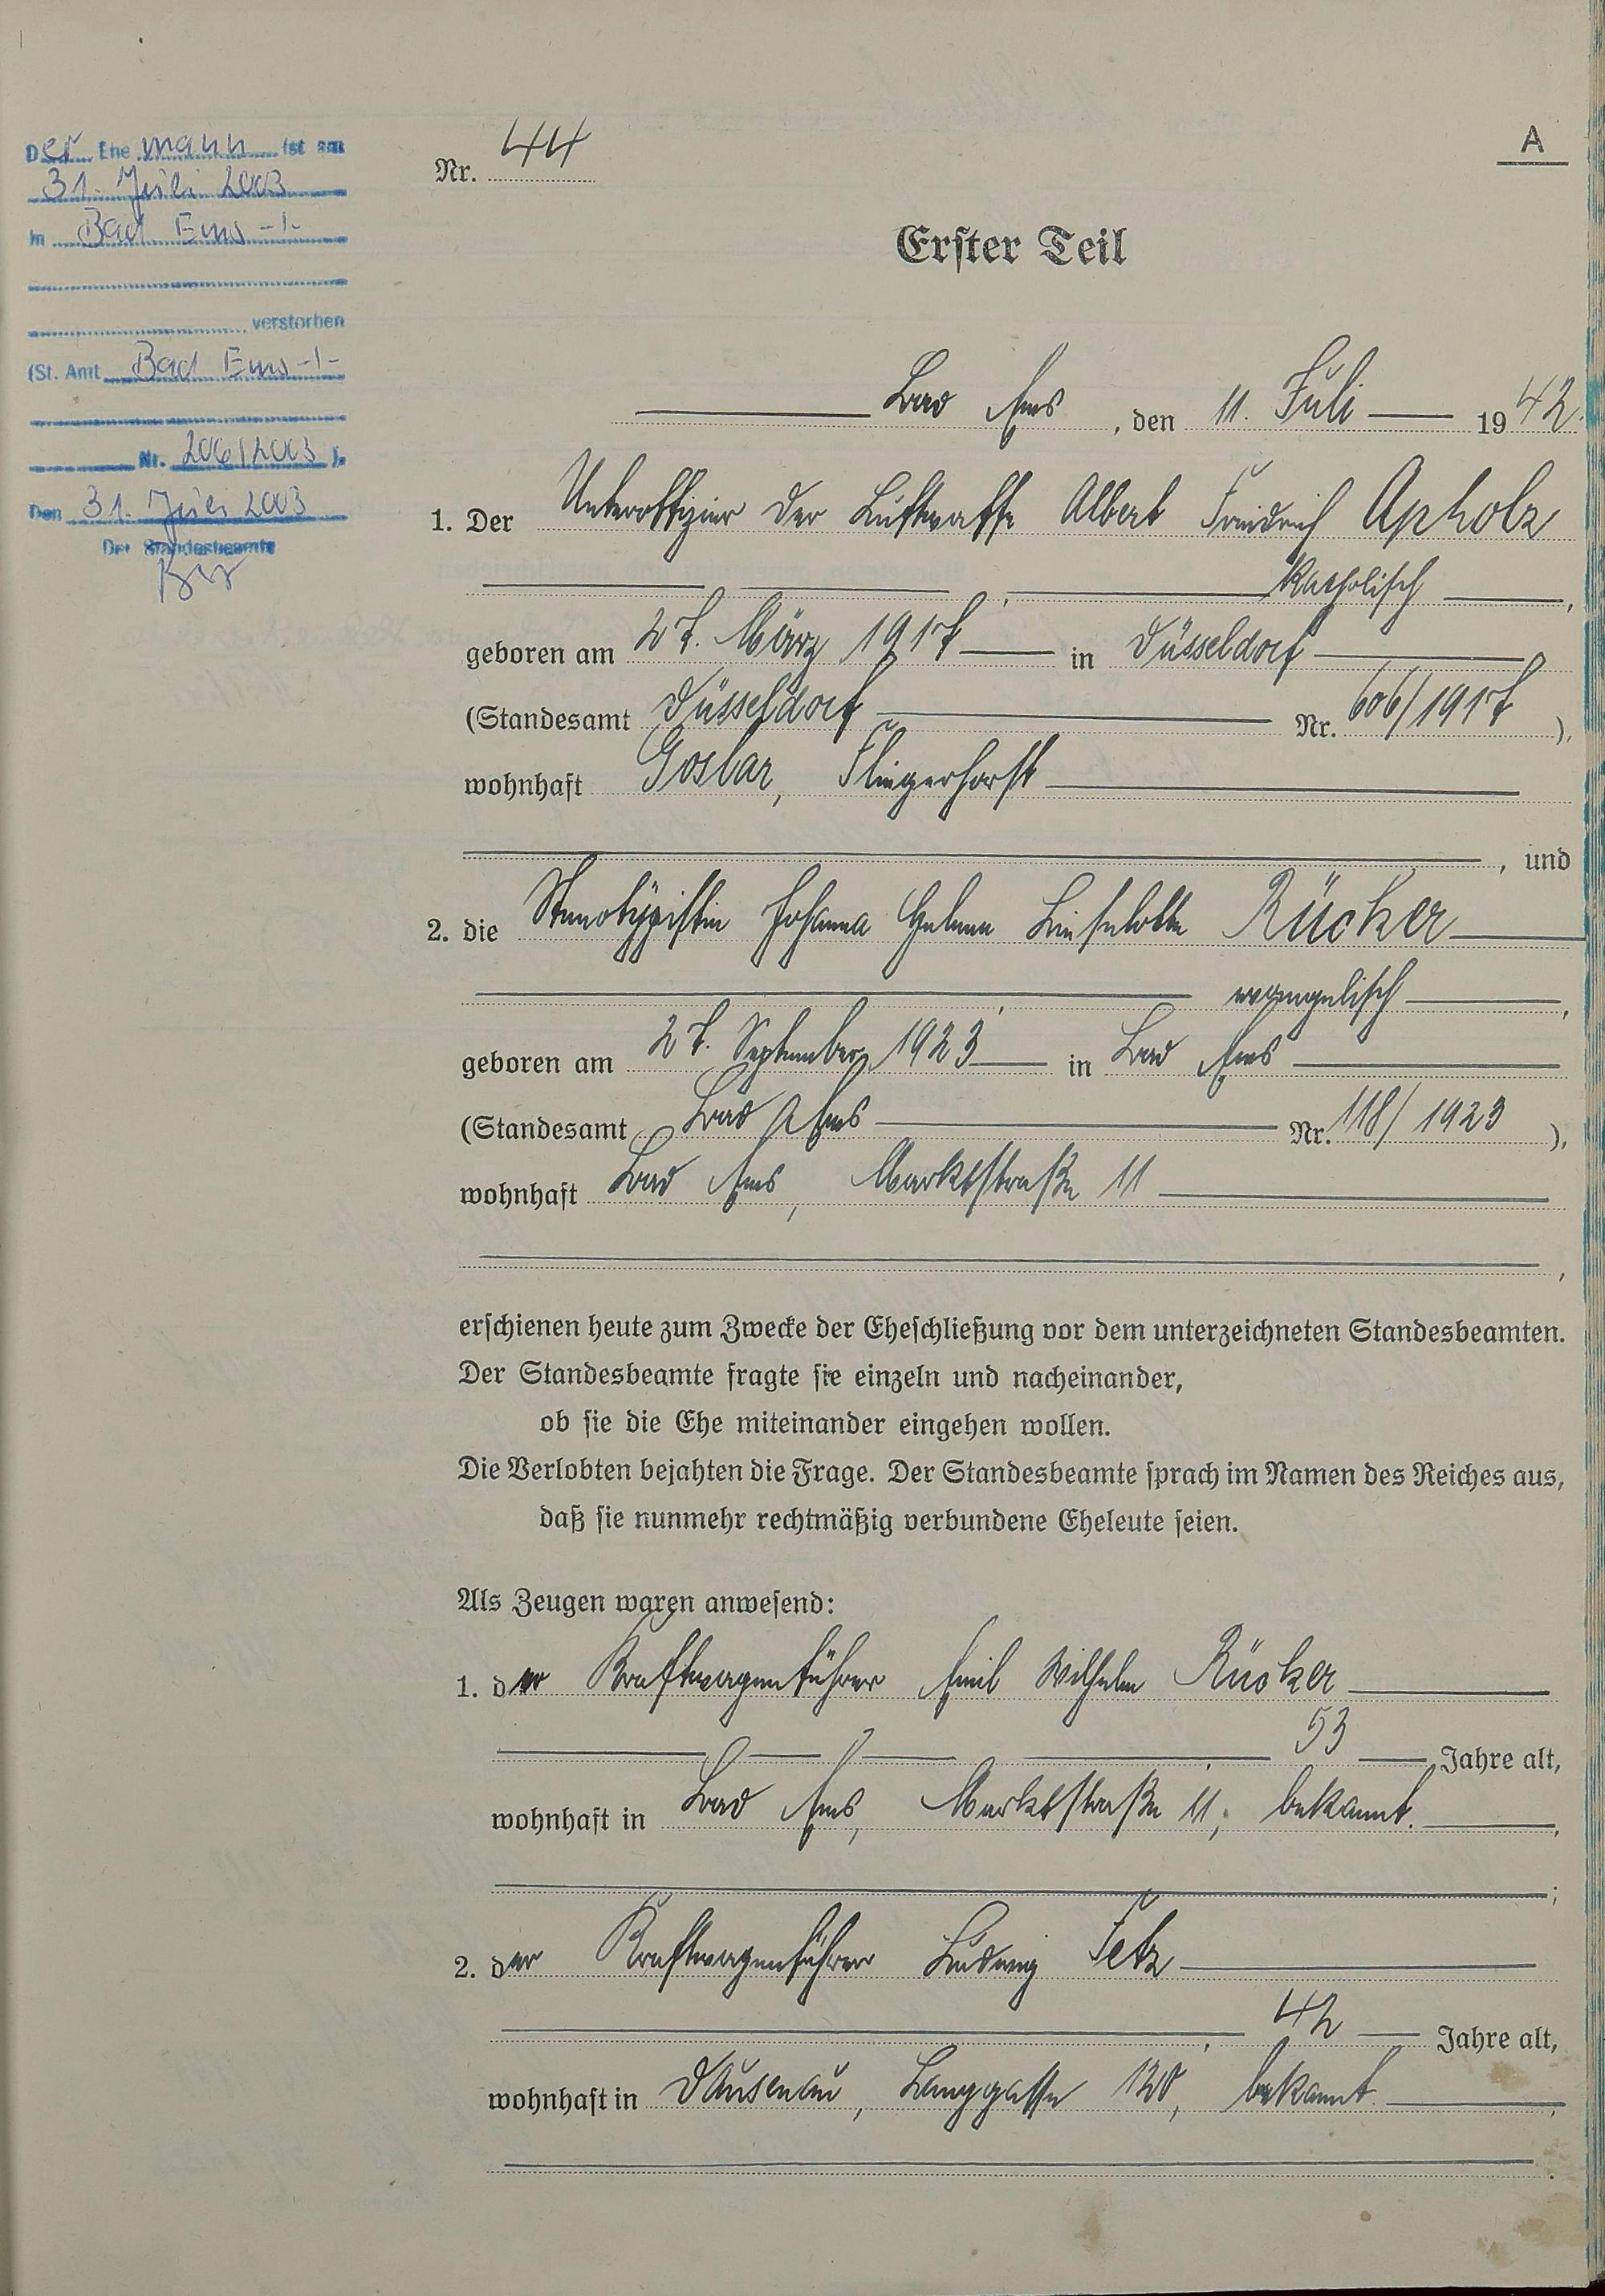 Der Ehemann ist am
31. Juli 2003
in Bad Ems -1-
verstorben
(St. Amt Bad Ems -1-
Nr. 206/2003 ).
Den 31. Juli 2003
Der Standesbeamte
A
Nr. 44
Erster Teil
Bad Ems, den 11. Juli 1942.
1. Der Unteroffizier der Luftwaffe Albert Friedrich Apholz
, katholisch,
geboren am 27. März 1917 in Düsseldorf
(Standesamt Düsseldorf Nr. 606/1917 ),
wohnhaft Goslar, Fliegerhorst
, und
2. die Stenotypistin Johanna Helene Lieselotte Rücker
, evangelisch,
geboren am 27. September 1923 in Bad Ems
(Standesamt Bad Ems Nr. 118/1923 ),
wohnhaft Bad Ems, Marktstraße 11
,
erschienen heute zum Zwecke der Eheschließung vor dem unterzeichneten Standesbeamten.
Der Standesbeamte fragte sie einzeln und nacheinander,
ob sie die Ehe miteinander eingehen wollen.
Die Verlobten bejahten die Frage. Der Standesbeamte sprach im Namen des Reiches aus,
daß sie nunmehr rechtmäßig verbundene Eheleute seien.
Als Zeugen waren anwesend:
1. der Kraftwagenführer Emil Wilhelm Rücker
, 53 Jahre alt,
wohnhaft in Bad Ems, Marktstraße 11, bekannt.,
;
2. der Kraftwagenführer Ludwig Fetz
, 42 Jahre alt,
wohnhaft in Dausenau, Langgasse 120, bekannt.,
.